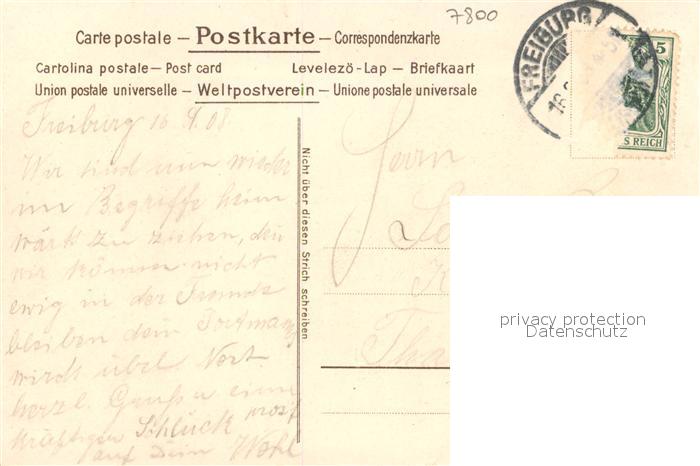 7800
Carte postale — Postkarte — Correspondenzkarte
Cartolina postale — Post card Levelezö-Lap — Briefkaart
Union postale universelle — Weltpostverein — Unione postale universale
FREIBURG
16
5
S REICH
Freiburg 16 9 08
Wir sind nun wieder
im Begriffe heim
wärts zu ziehen, den
wir können nicht
ewig in der Fremde
bleiben dem
wirds übel
herzl. Gruß u einen
kräftigen Schluck
auf Dein Wohl
Nicht über diesen Strich schreiben
Herrn
privacy protection
Datenschutz